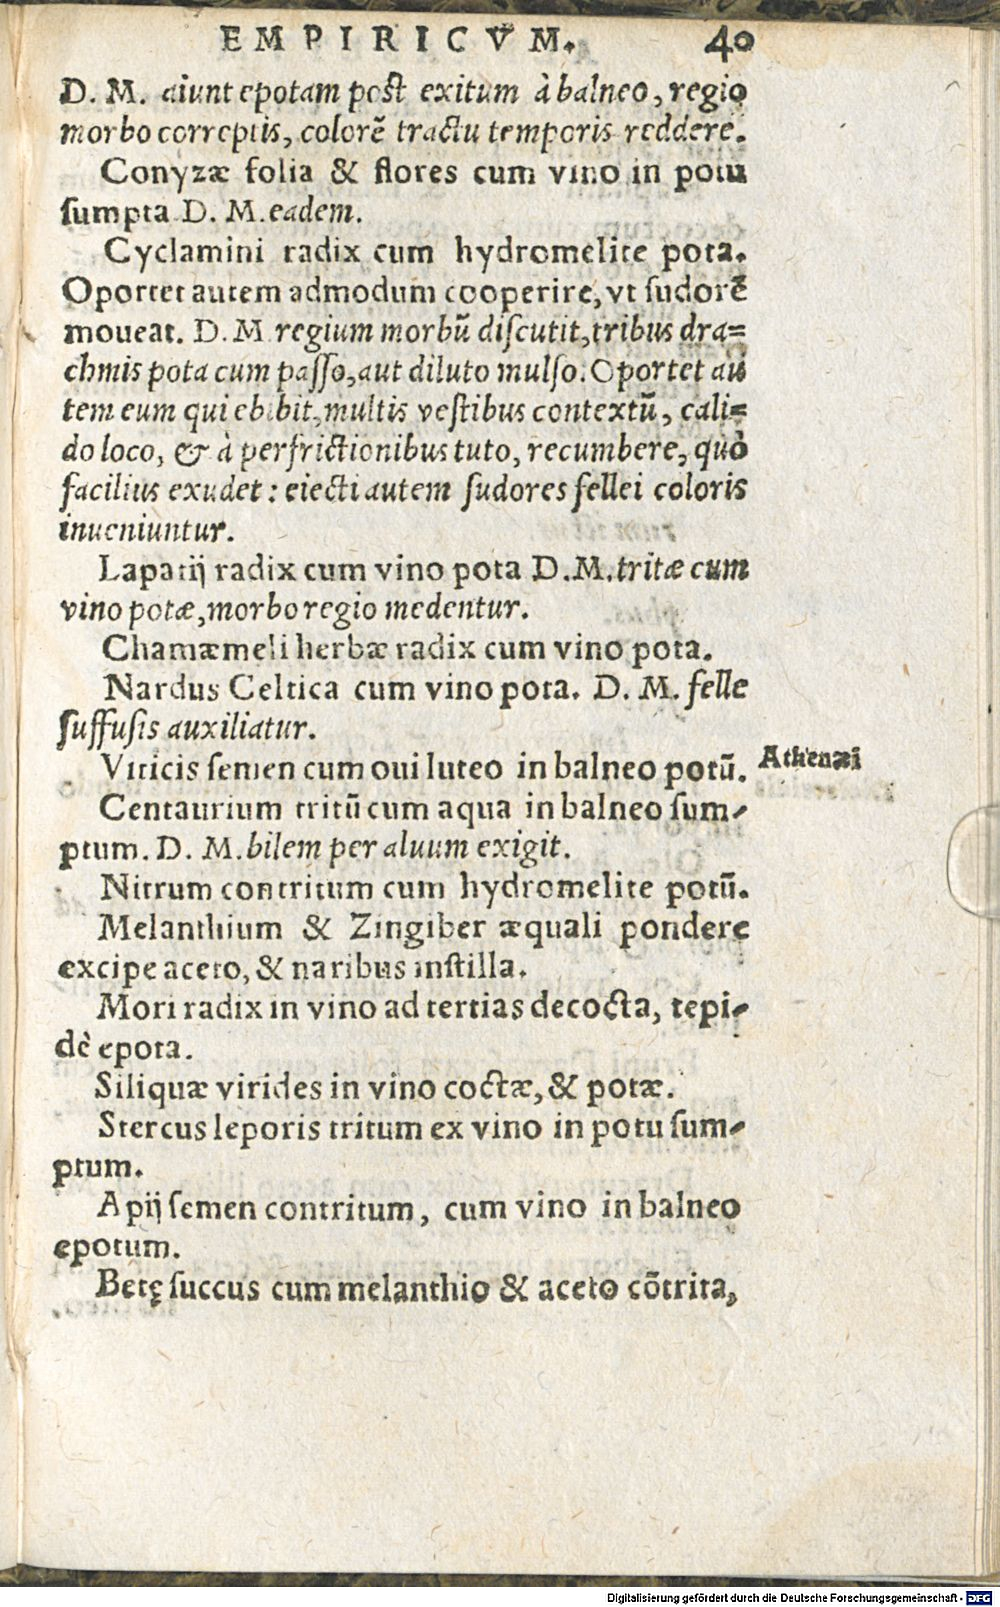 EMPIRICVM. 40
D. M. aiunt epotam post exitum à balneo, regio
morbo correptis, colorē tractu temporis reddere.
Conyzæ folia & flores cum vino in potu
sumpta D. M. eadem.
Cyclamini radix cum hydromelite pota.
Oportet autem admodum cooperire, vt sudorē
moueat. D. M regium morbū discutit, tribus dra=
chmis pota cum passo, aut diluto mulso. Oportet au
tem eum qui ebibit, multis vestibus contextū, cali=
do loco, & à perfrictionibus tuto, recumbere, quò
facilius exudet: eiecti autem sudores fellei coloris
inueniuntur.
Lapatij radix cum vino pota D. M. tritæ cum
vino potæ, morbo regio medentur.
Chamæmeli herbæ radix cum vino pota.
Nardus Celtica cum vino pota. D. M. felle
suffusis auxiliatur.
Viticis semen cum oui luteo in balneo potū. Athenæi
Centaurium tritū cum aqua in balneo sum-
ptum. D. M. bilem per aluum exigit.
Nitrum contritum cum hydromelite potū.
Melanthium & Zingiber æquali pondere
excipe aceto, & naribus instilla.
Mori radix in vino ad tertias decocta, tepi-
dè epota.
Siliquæ virides in vino coctæ, & potæ.
Stercus leporis tritum ex vino in potu sum-
ptum.
Apij semen contritum, cum vino in balneo
epotum.
Betę succus cum melanthio & aceto cōtrita,
Digitalisierung gefördert durch die Deutsche Forschungsgemeinschaft - DFG